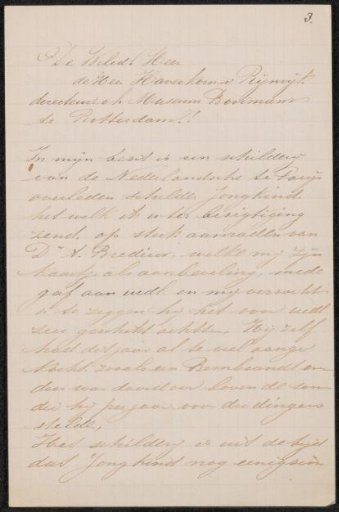 3.
De WelEd. Heer
de Heer Haverkorn v Rijswijk
directeur v h Museum Boymans
te Rotterdam!!
In mijn bezit is een schilderij
van de Nederlandsche te Parijs
overleden schilder Jongkind
het welk ik u ter bezigtiging
zend, op sterk aanraaden van
Dr A. Bredius, welke mij zijn
kaartje als aanbeveling, mede
gaf aan uedl en mij verzocht
u te zeggen hij het voor uedl
zeer geschikt achtte. Hij zelf
had dit jaar al te veel aange
kocht zooals een Rembrandt en
dus was daardoor boven de som
die hij per jaar voor die dingen
stelde,
Het schilderij is uit de tijd
dat Jongkind nog eenigsin